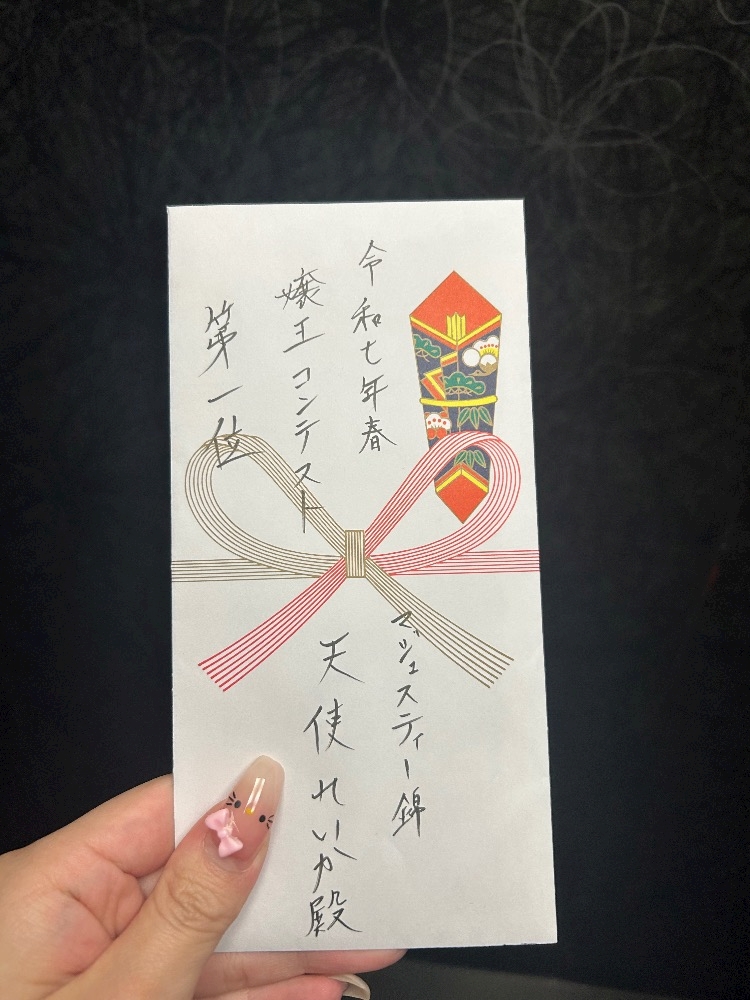 令和七年春
嬢王コンテスト
第一位
マジェスティー錦
天使れいか殿